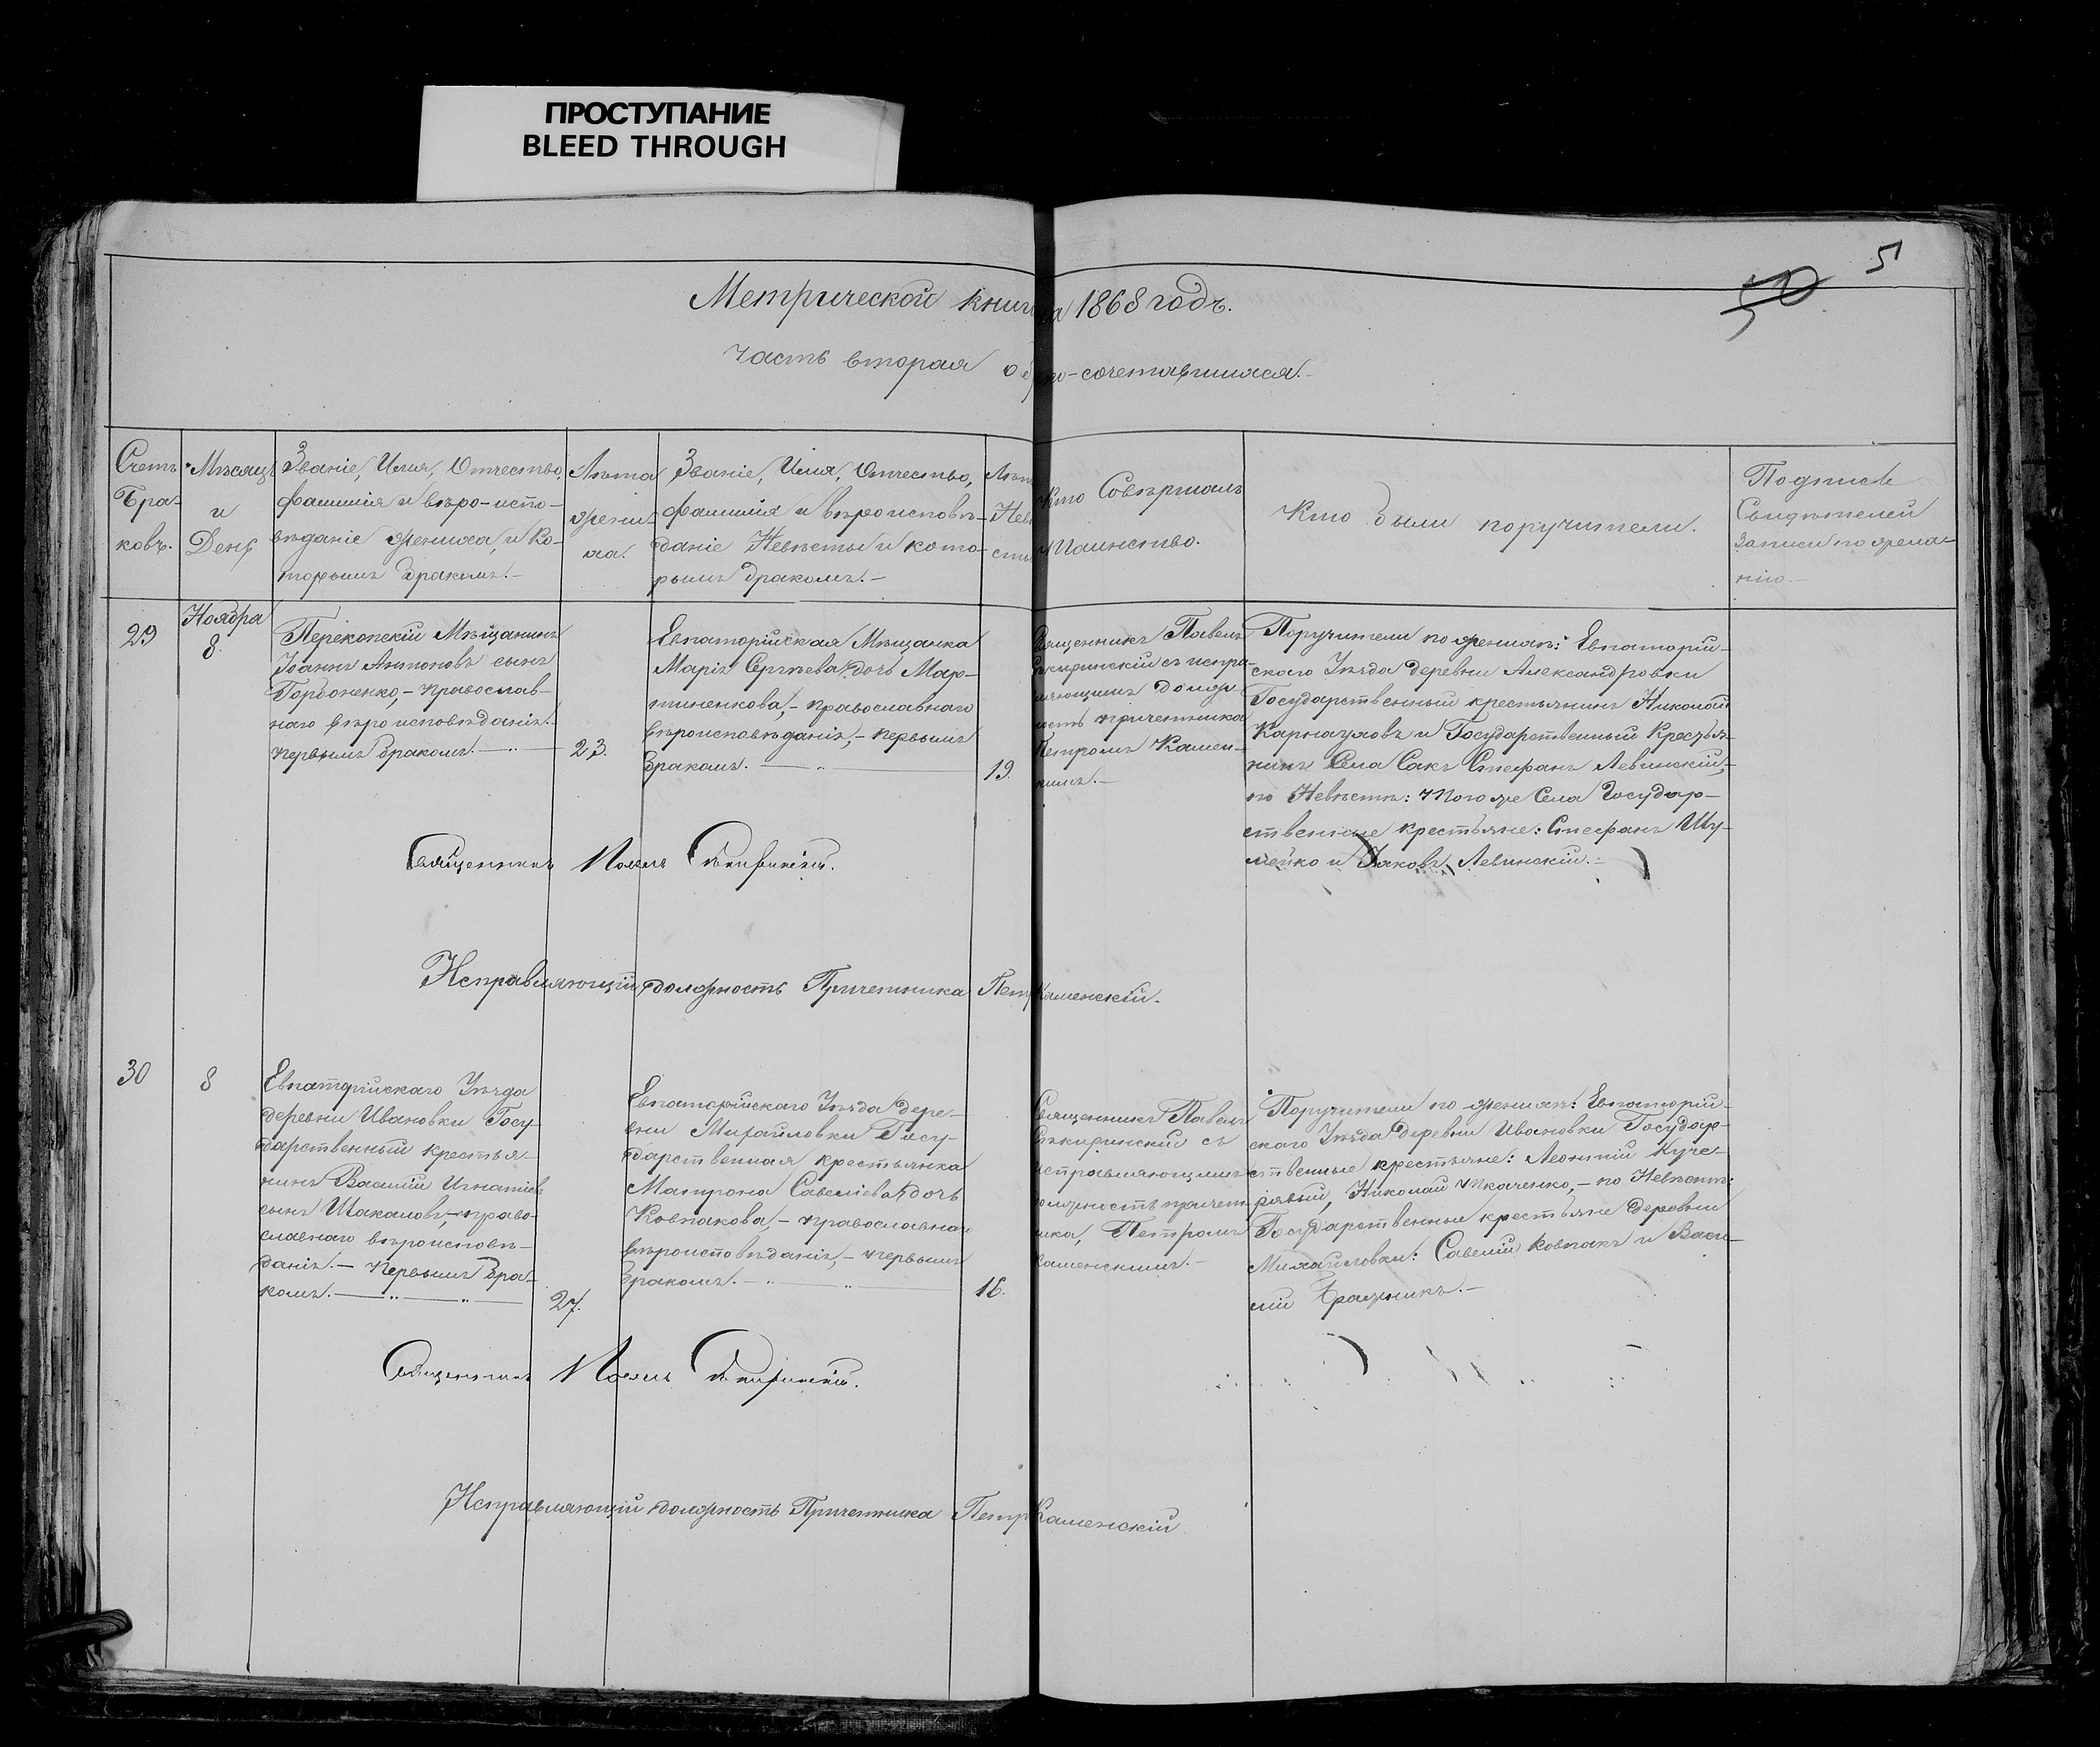 ПРОСТУПАНИЕ
BLEED THROUGH
5
50
Метрической книги на 1868 годъ.
Часть вторая о бракосочетавшихся.
Счетъ Браковъ.
Мѣсяцъ и День
Званіе, Имя, Отчество,
фамилія и вѣро-испо-
вѣданіе жениха, и Ко-
торымъ бракомъ.—
Лѣта
жени-
ха.
Званіе, Имя, Отчество,
фамилія и вѣроисповѣ-
даніе Невѣсты и кото-
рымъ бракомъ.—
Лѣта
Неве-
сты
Кто Совѣршалъ
Таинство.
Кто были поручители.
Подписи
Свидѣтелей
Записи по жела-
нію.—
29
Ноября
8.
Перекопскій Мѣщанинъ
Іоаннъ Антоновъ сынъ
Горбоненко,- православ-
наго вѣроисповѣданія.-
первымъ бракомъ.—
23.
Евпаторійская Мѣщанка
Марія Сергѣева дочь Мар-
тиненкова,- православнаго
вѣроисповѣданія,- первымъ
бракомъ.—
19.
Священникъ Павелъ
Сѣкиринскій съ испра-
вляющимъ долж-
ность причетника
Петромъ Камен-
скимъ.—
Поручители по женихѣ: Евпаторій-
скаго Уѣзда деревни Александровки
Государственный крестьянинъ Николай
Карнауховъ и Государственный Крестья-
нинъ Села Сакъ Стефанъ Левинскій,-
по Невѣстѣ: того же Села Государ-
ственные крестьяне: Стефанъ Шу-
мейко и Іаковъ Левинскій.-
Священникъ Павелъ Сѣкиринскій.
Исправляющій должность Причетника Петръ Каменскій.
30
8
Евпаторійскаго Уѣзда
деревни Ивановки Госу-
дарственный крестья-
нинъ Василій Игнатіевъ
сынъ Шакаловъ,- право-
славнаго вѣроисповѣ-
данія.— Первымъ бра-
комъ.—
27.
Евпаторійскаго Уѣзда дере-
вни Михайловки Госу-
дарственная крестьянка
Матрона Савеліева дочь
Ковпакова,- православнаго
вѣроисповѣданія,- первымъ
бракомъ.—
18.
Священникъ Павелъ
Сѣкиринскій съ
исправляющимъ
должность причет-
ника, Петромъ
Каменскимъ.—
Поручители по женихѣ: Евпаторій-
скаго Уѣзда деревни Ивановки Государ-
ственные крестьяне: Леонтій Куче-
рявый, Николай Ткаченко,- по Невѣстѣ:
Государственные крестьяне деревни
Михайловки: Савелій Ковпакъ и Васи-
лій Бражникъ.—
Священникъ Павелъ Сѣкиринскій.
Исправляющій должность Причетника Петръ Каменскій